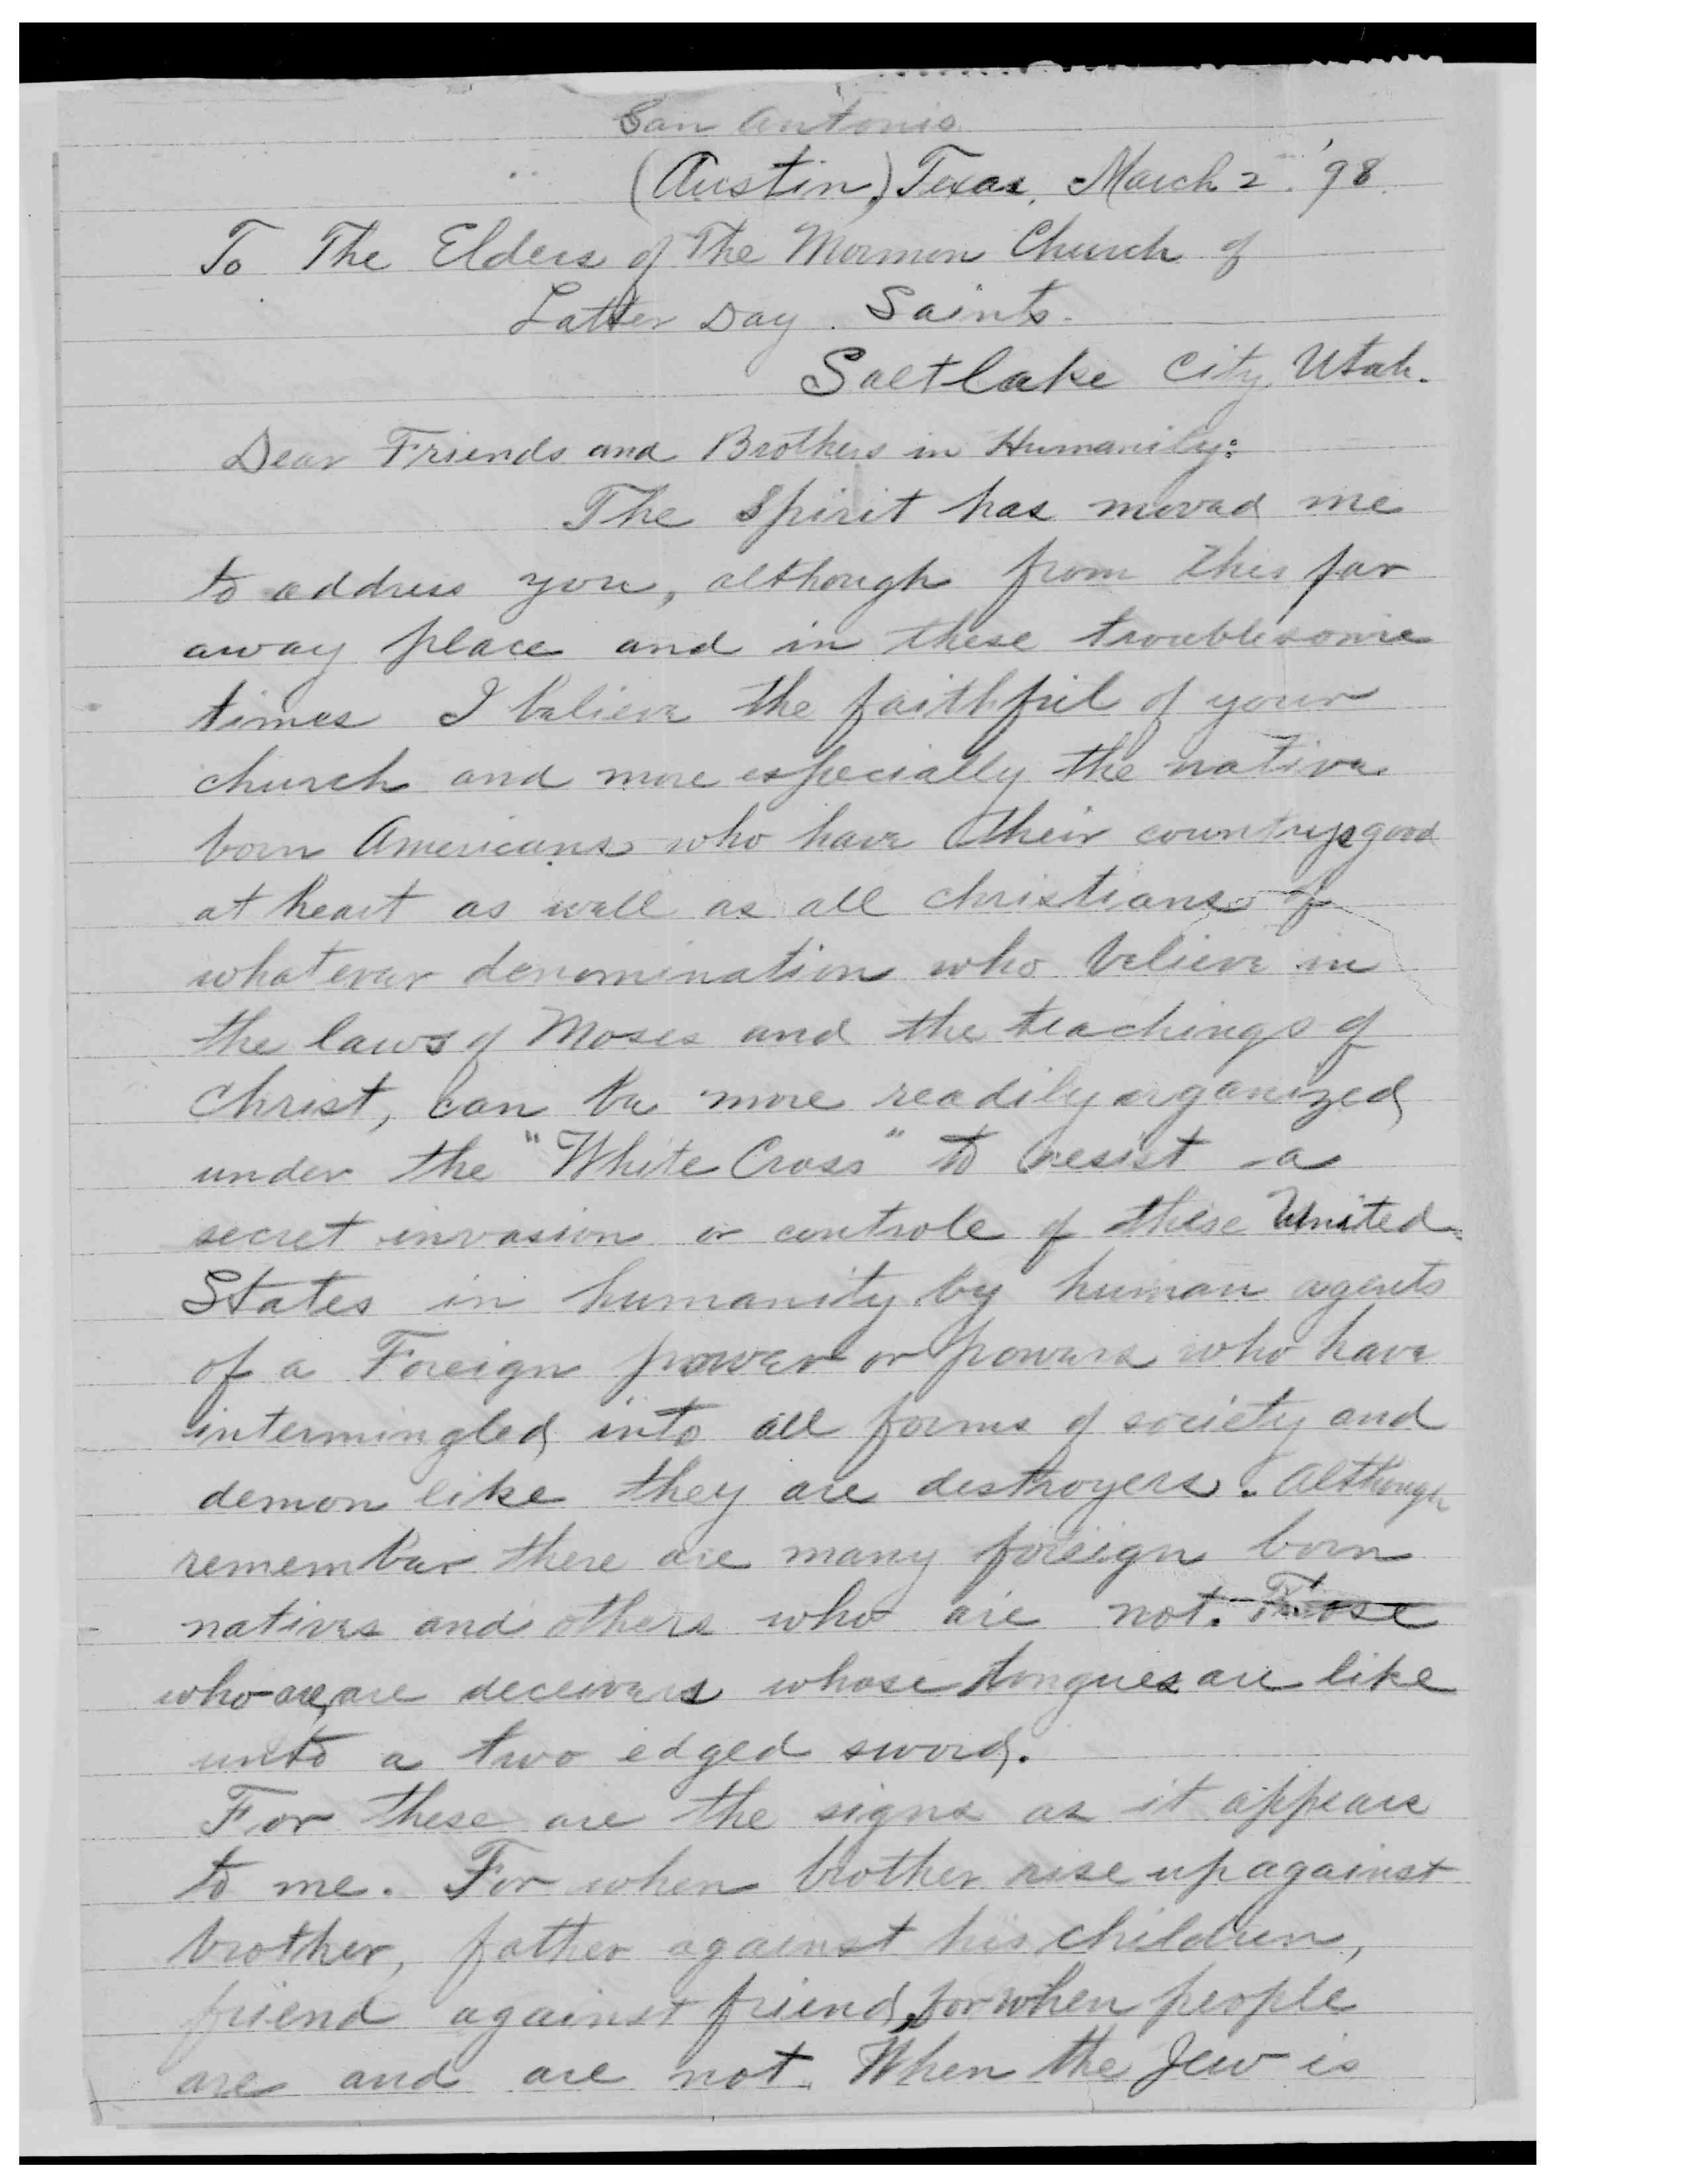 San Antonio
(Austin,) Texas, March 2. '98.
To The Elders of The Mormon Church of
Latter Day. Saints.
Saltlake City, Utah.
Dear Friends and Brothers in Humanity:
The Spirit has moved me
to address you, although from this far
away place and in these troublesome
times I believe the faithful of your
church and more especially the native
born Americans who have their countrys good
at heart as well as all christians of
whatever denomination who believe in
the laws of Moses and the teachings of
Christ, can be more readily organized
under the "White Cross" to resist a
secret invasion or controle of these United
States in humanity by human agents
of a Foreign power or powers who have
intermingled into all forms of society and
demon like they are destroyers. Although
remember there are many foreign born
natives and others who are not. Those
who are, are deceivers whose tongues are like
unto a two edged sword.
For these are the signs as it appears
to me. For when brother rise up against
brother, father against his children,
friend against friend, for when people
are and are not. When the Jew is